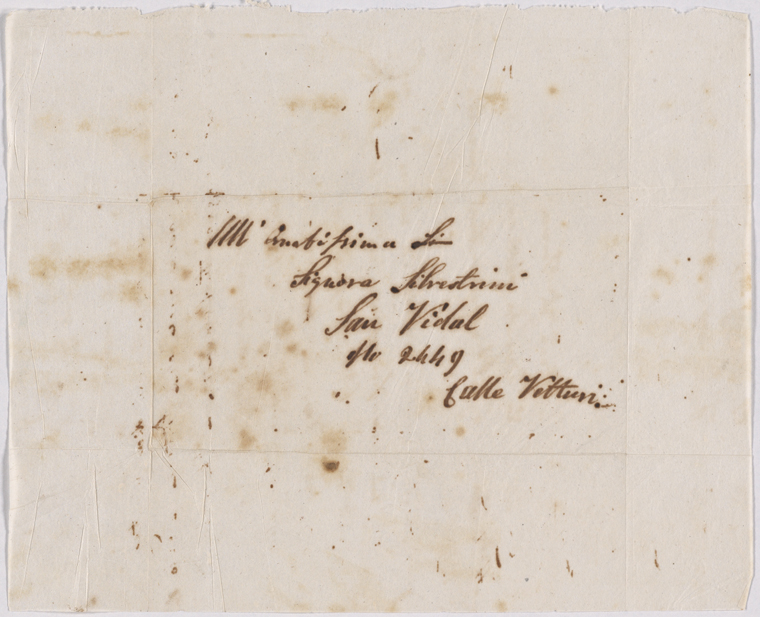 All' Amabilissima Sra
Signora Silvestrini
San Vidal
No 2449
Calle Vetturi